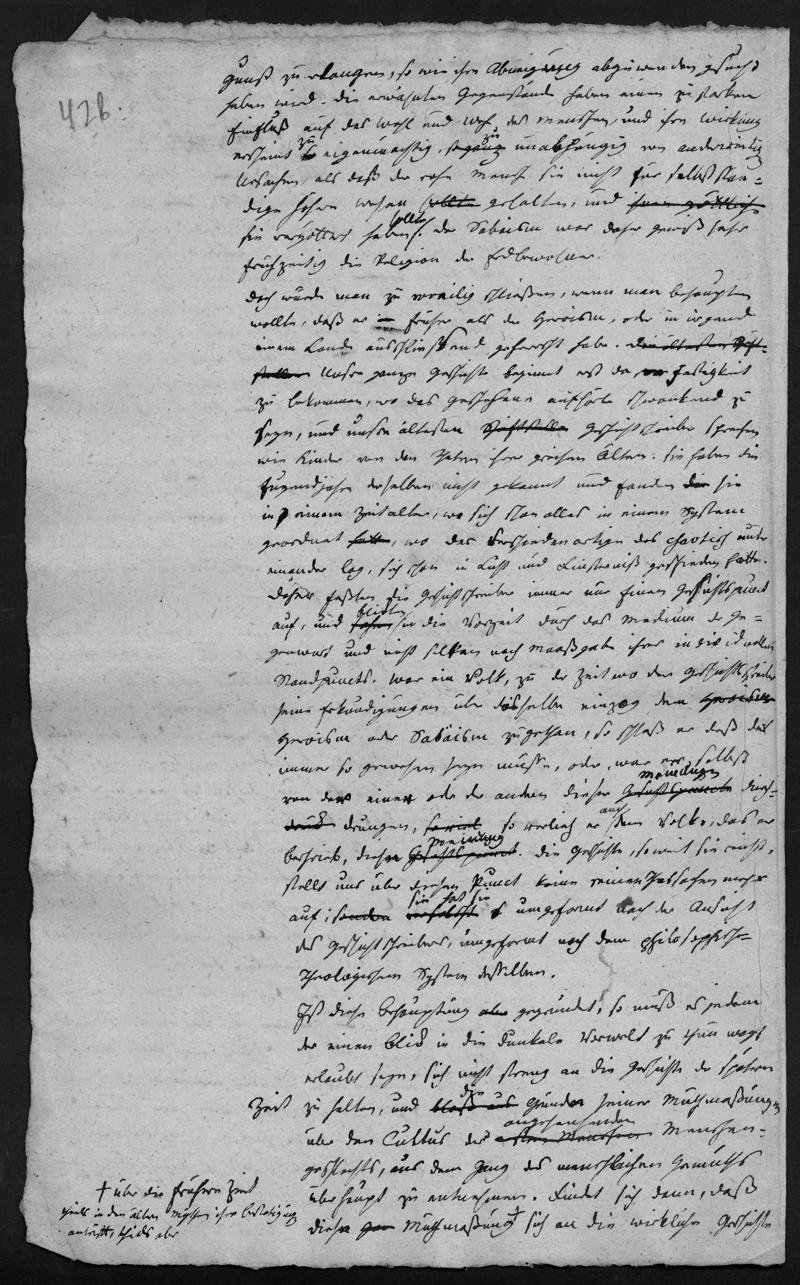 426.
Gunst zu erlangen, so wie ihre Abneigung abzuwenden gesucht
haben wird. Die erwähnten Gegenstände haben einen zu starken
Einfluß auf das Wohl und Weh des Menschen, und ihre Wirkung
erscheint zu eigenmächtig, zu unabhängig von anderweitig
Ursachen, als daß der rohe Mensch sie nicht für selbststän=
dige höhere Wesen sollte gehalten, und ihnen göttliche
sie vergöttert haben sollte. Der Sabäism war daher gewiß sehr
frühzeitig die Religion der Erdbewohner.
Doch würde man zu voreilig schließen, wenn man behaupten
wollte, daß er früher als der Heroism, oder in irgend
einem Lande ausschließend geherrscht habe. Die ältesten Schrift-
steller Unsre ganze Geschichte beginnt erst da Festigkeit
zu bekommen, wo das Geschehene aufhörte schwankend zu
seyn, und unsre ältesten Schriftsteller Geschichtschreiber sprechen
wie Kinder von den Thaten ihrer greisen Ältern. Sie haben die
Jugendjahre derselben nicht gekannt und fanden die sie
in einem Zeitalter, wo sich schon alles in einem System
geordnet hatte, wo das Verschiedenartige das chaotisch unter
einander lag, sich schon in Licht und Finsterniß geschieden hatte.
Daher faßten die Geschichtschreiber immer nur Einen Gesichtspunct
auf, und blickten in die Vorzeit durch das Medium der Ge=
genwart und nicht selten nach Maaßgabe ihres individuellen
Standpuncts. War ein Volk, zu der Zeit wo der Geschichtschreiber
seine Erkundigungen über dasselbe einzog dem Heroism
Heroism oder Sabäism zugethan, so schloß er daß das
immer so gewesen seyn müsse, oder war er selbst
von der einen oder der andren dieser Gesichtspuncte Meinungen durch=
drungen, so verlieh er auch dem Volke, das er
beschrieb, diese Gesichtspunct Meinung. Die Geschichte, so weit sie reicht,
stellt uns über diesen Punct keine reinen Thatsachen mehr
auf; sondern verfälscht sie hat sie umgeformt nach der Ansicht
des Geschichtschreibers, umgeformt nach dem philosophisch-
theologischen System desselben.
Ist diese Behauptung aber gegründet, so muß es jedem
der einen Blick in die dunkele Vorwelt zu thun wagt
erlaubt seyn, sich nicht streng an die Geschichte der spätern
Zeit zu halten, und bloß aus die Gründe seiner Muthmaßungen
über den Cultus des ersten Menschen angehenden Menschen=
geschlechts, aus dem Gang des menschlichen Gemüths
überhaupt zu entnehmen. Findet sich denn, daß
diese Muthmaßung + sich an die wirkliche Geschichte
+ über die frühere Zeit
theils in den alten Mythen ihre Bestätigung
antrifft, theils aber